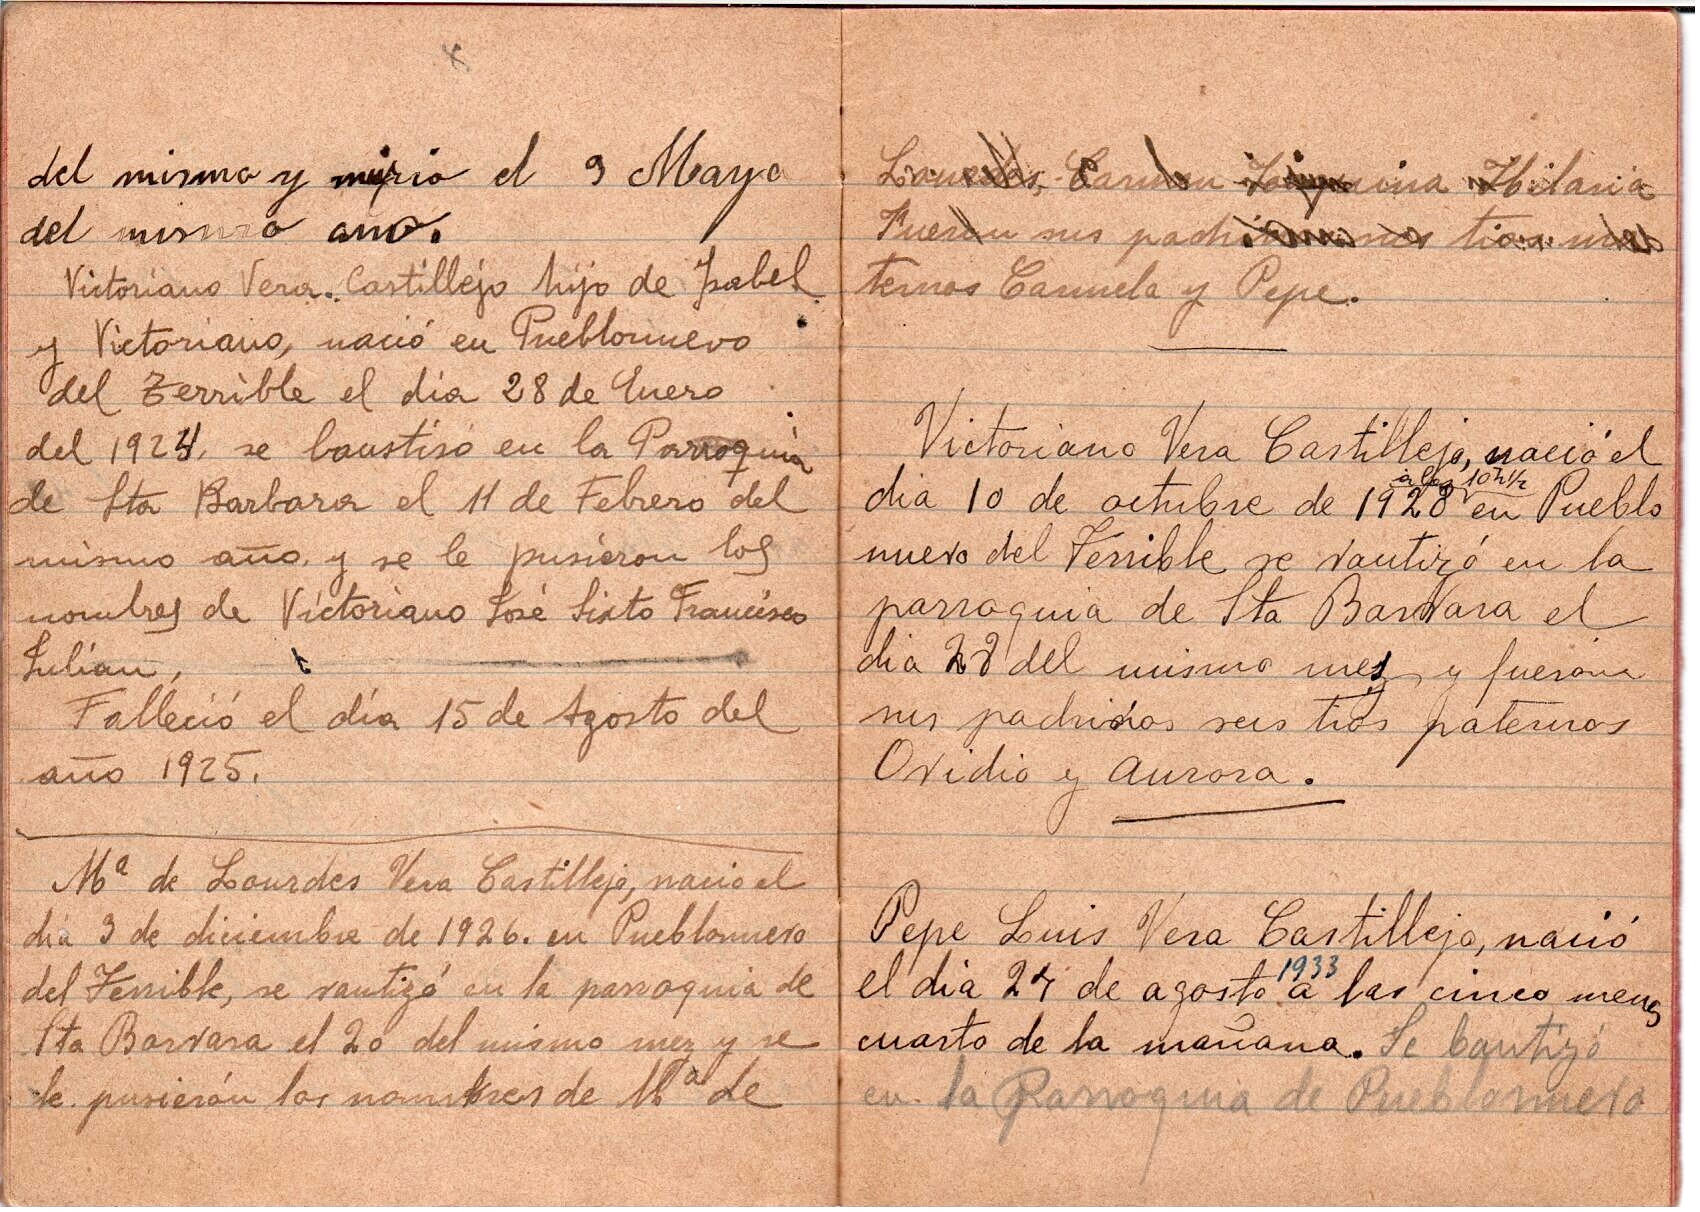 del mismo y murio el 9 Mayo
del mismo año.
Victoriano Vera Castillejo hijo de Isabel
y Victoriano, nació en Pueblonuevo
del Terrible el dia 28 de Enero
del 1924, se baustisó en la Parroquia
de Sta Barbara el 11 de Febrero del
mismo año y se le pusieron los
nombres de Victoriano José Sixto Francisco
Julian,
Falleció el día 15 de Agosto del
año 1925.
Mª de Lourdes Vera Castillejo, nacio el
dia 3 de diciembre de 1926. en Pueblonuevo
del Terrible, se vautizó en la parroquia de
Sta Barvara el 20 del mismo mez y se
le pusierón los nombres de Mª de
Lourdes, Carmen Joaquina Hilaria
Fuerón sus padrinos sus tios ma
ternos Carmela y Pepe.
Victoriano Vera Castillejo, nació el
a las 10 h 1/2
dia 10 de octubre de 1928 en Pueblo
nuevo del Terrible se vautizó en la
parroquia de Sta Barvara el
dia 28 del mismo mes y fuerón
sus padrinos sus tios paternos
Ovidio y Aurora.
Pepe Luis Vera Castillejo, nació
1933
el dia 27 de agosto a las cinco menos
cuarto de la mañana. Se bautizó
en la Parroquia de Pueblonuevo